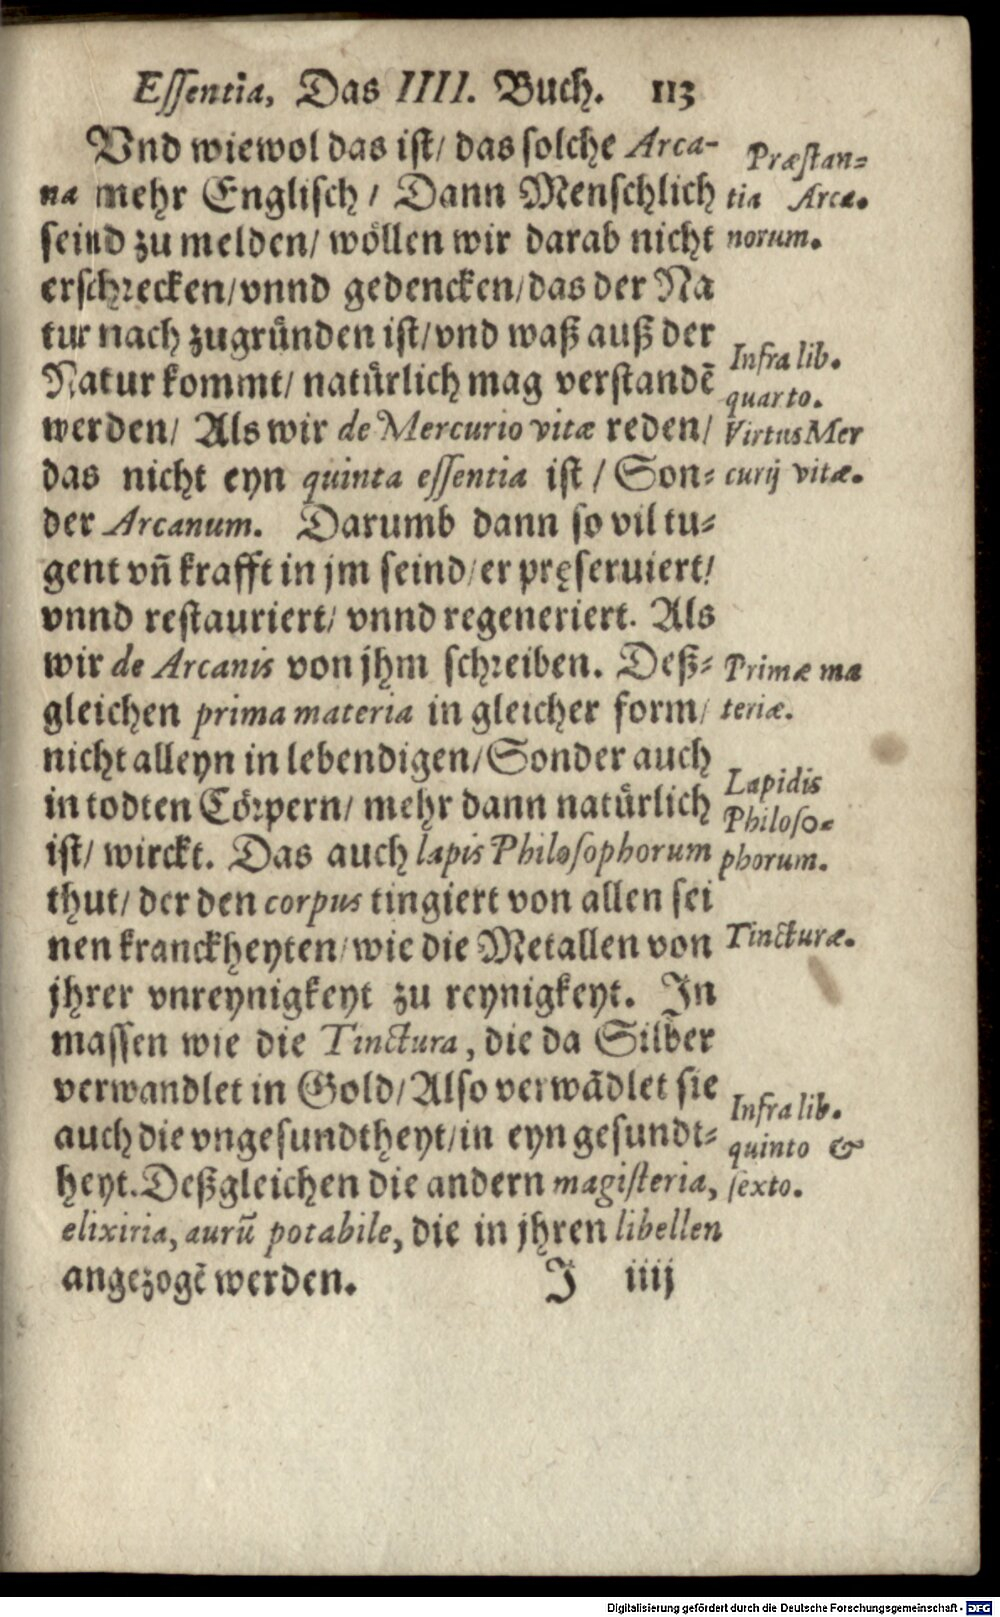 Essentia, Das IIII. Buch. 113
Vnd wiewol das ist/ das solche Arca-
na mehr Englisch / Dann Menschlich
seind zu melden/ wöllen wir darab nicht
erschrecken/vnnd gedencken/das der Na
tur nach zugründen ist/vnd waß auß der
Natur kommt/ natürlich mag verstandẽ
werden/ Als wir de Mercurio vitæ reden/
das nicht eyn quinta essentia ist / Son-
der Arcanum. Darumb dann so vil tu-
gent vñ krafft in jm seind/er pręseruiert/
vnnd restauriert/ vnnd regeneriert. Als
wir de Arcanis von jhm schreiben. Deß-
gleichen prima materia in gleicher form/
nicht alleyn in lebendigen/Sonder auch
in todten Cörpern/ mehr dann natürlich
ist/ wirckt. Das auch lapis Philosophorum
thut/ der den corpus tingiert von allen sei
nen kranckheyten/wie die Metallen von
jhrer vnreynigkeyt zu reynigkeyt. In
massen wie die Tinctura, die da Silber
verwandlet in Gold/Also verwãdlet sie
auch die vngesundtheyt/in eyn gesundt-
heyt. Deßgleichen die andern magisteria,
elixiria, aurũ potabile, die in jhren libellen
angezogẽ werden.
J iiij
Præstan-
tia Arca-
norum.
Infra lib.
quarto.
Virtus Mer
curij vitæ.
Primæ ma
teriæ.
Lapidis
Philoso-
phorum.
Tincturæ.
Infra lib.
quinto &
sexto.
Digitalisierung gefördert durch die Deutsche Forschungsgemeinschaft - DFG